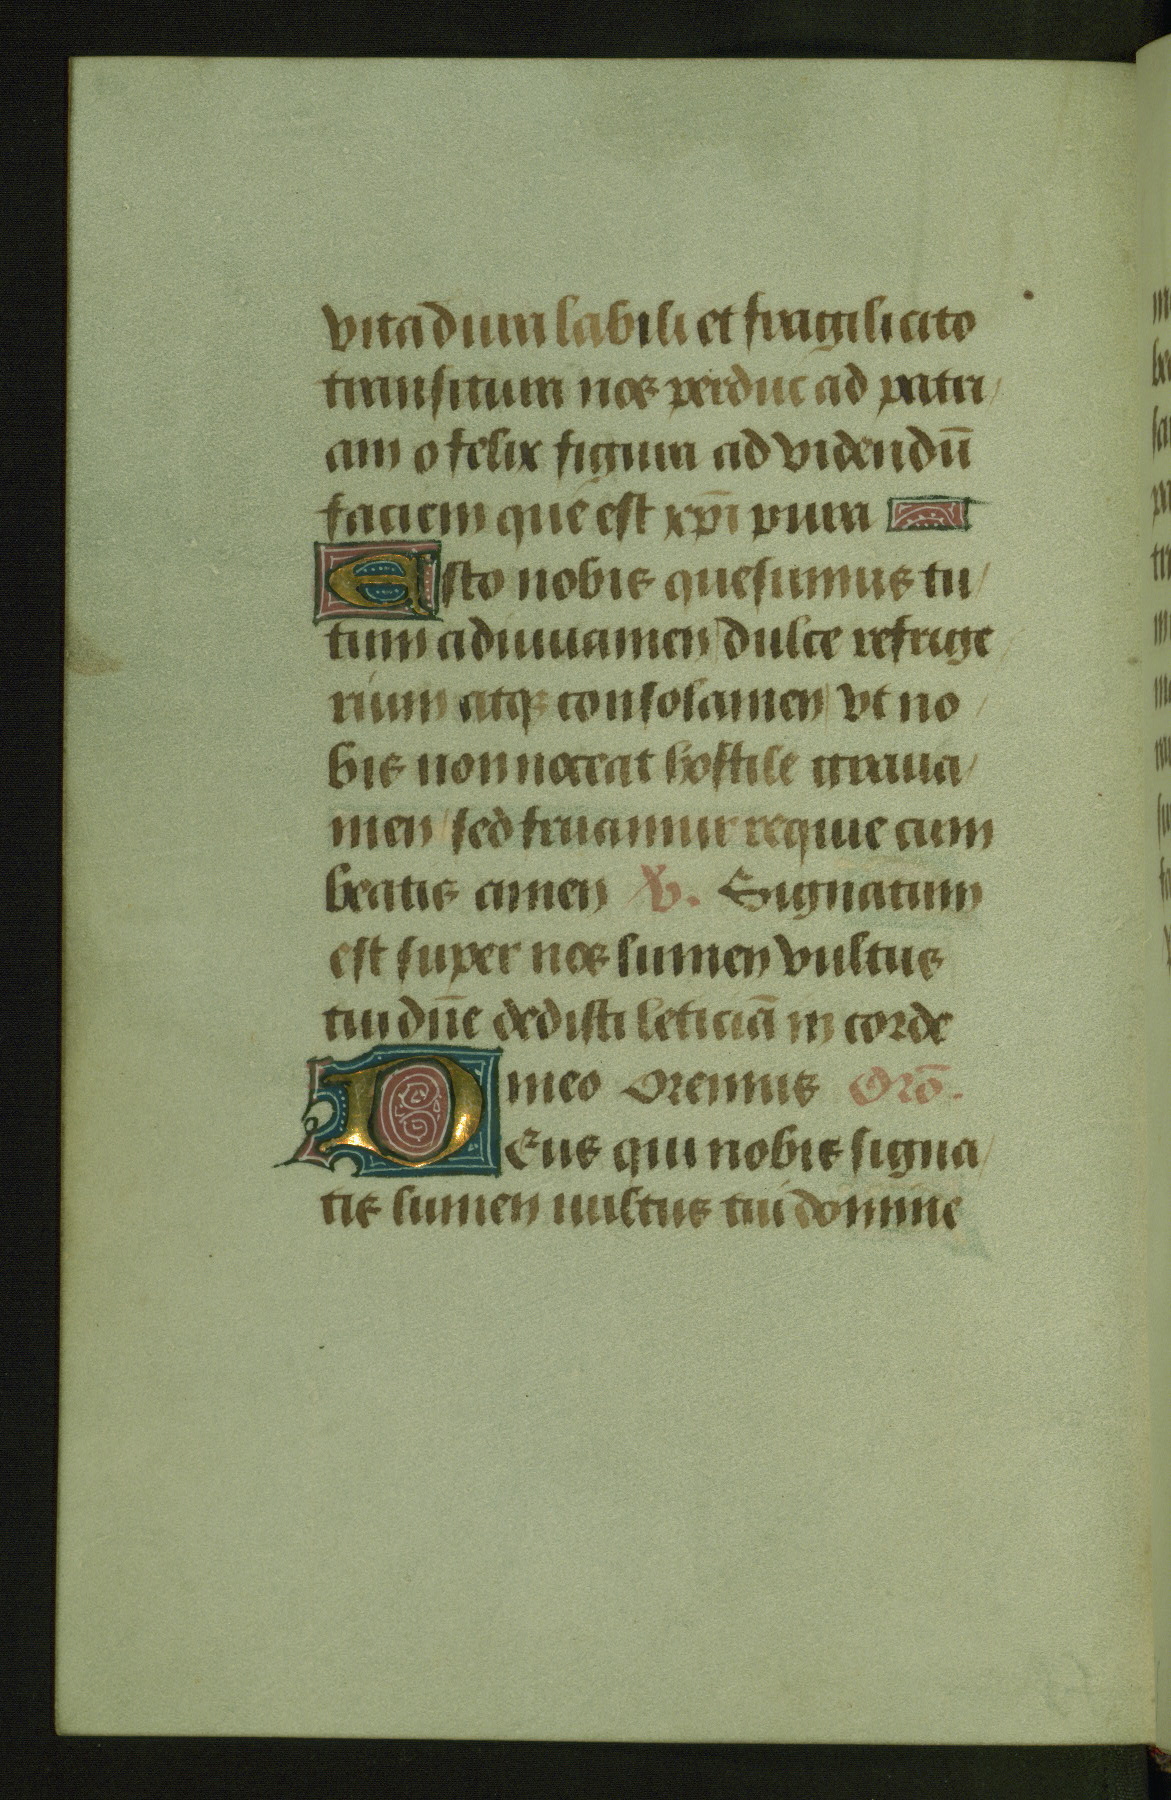 vita dura labili et fragili cito
transitura nos perduc ad patri
am o felix figura ad videndū
faciem que est xp̄i pura
Esto nobis quesumus tu
tum adiuuamen dulce refrige
rium atqꝫ consolamen vt no
bis non noceat hostile graua
men sed fruamur requie cum
beatis amen ℣. Signatum
est super nos lumen vultus
tui dn̄e dedisti leticiā in corde
meo Oremus Orō.
Deus qui nobis signa
tis lumen uultus tui domine